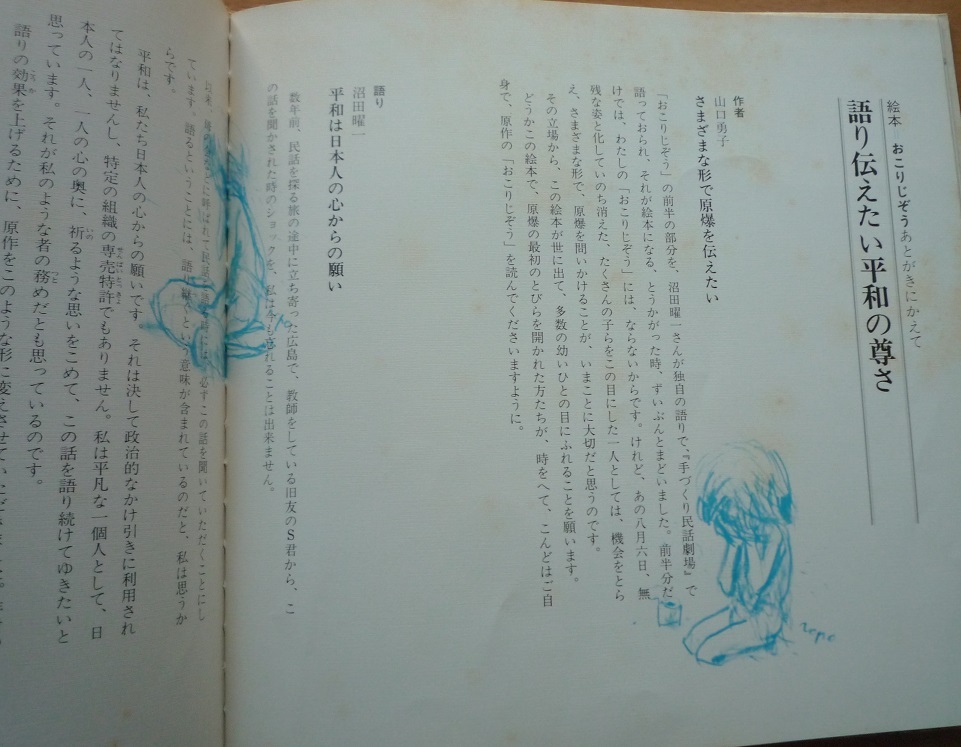 絵本 おこりじぞうあとがきにかえて
語り伝えたい平和の尊さ
作者
山口勇子
さまざまな形で原爆を伝えたい
「おこりじぞう」の前半の部分を、沼田曜一さんが独自の語りで、『手づくり民話劇場』で
語っておられ、それが絵本になる、とうかがった時、ずいぶんとまどいました。前半分だ
けでは、わたしの「おこりじぞう」には、ならないからです。けれど、あの八月六日、無
残な姿と化していのち消えた、たくさんの子らをこの目にした一人としては、機会をとら
え、さまざまな形で、原爆を問いかけることが、いまことに大切だと思うのです。
その立場から、この絵本が世に出て、多数の幼いひとの目にふれることを願います。
どうかこの絵本で、原爆の最初のとびらを開かれた方たちが、時をへて、こんどはご自
身で、原作の「おこりじぞう」を読んでくださいますように。
語り
沼田曜一
平和は日本人の心からの願い
数年前、民話を探る旅の途中に立ち寄った広島で、教師をしている旧友のS君から、こ
の話を聞かされた時のショックを、私は今も忘れることは出来ません。
以来、
に呼ばれて民話を語る時には、必ずこの話を聞いていただくことにし
ています。語るということには、語り継ぐという意味が含まれているのだと、私は思うか
らです。
平和は、私たち日本人の心からの願いです。それは決して政治的なかけ引きに利用され
てはなりませんし、特定の組織の専売特許でもありません。私は平凡な一個人として、日
本人の一人、一人の心の奥に、祈るような思いをこめて、この話を語り続けてゆきたいと
思っています。それが私のような者の務めだとも思っているのです。
語りの効果を上げるために、原作をこのような形に変えさせていただきました。